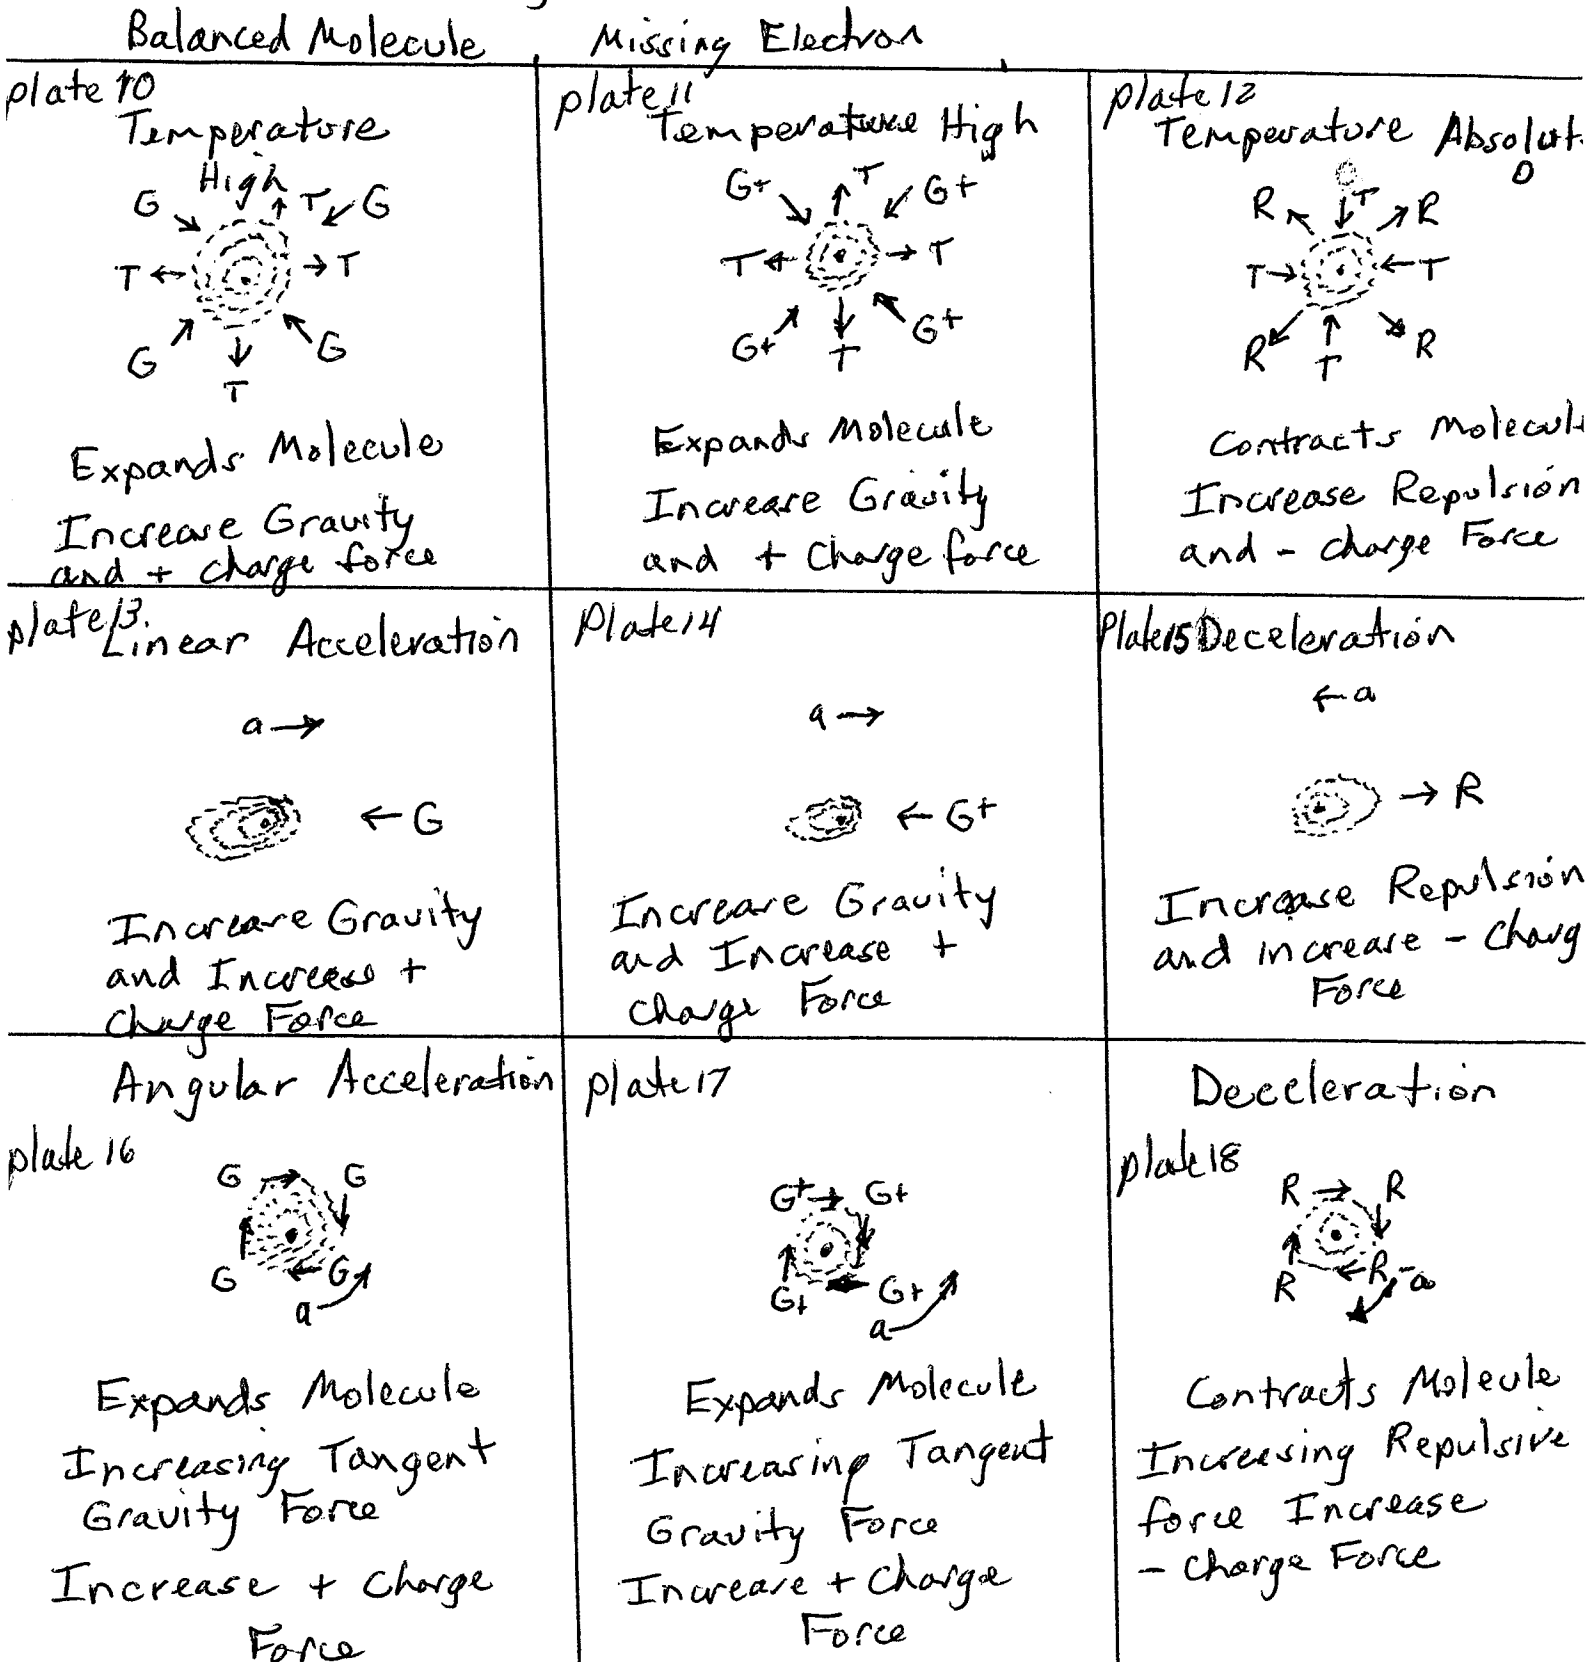 Balanced Molecule
Missing Electron
plate 10
Temperature
High
G T G
T T
G G
T
Expands Molecule
Increase Gravity
and + charge force
plate 11
Temperature High
G+ T G+
T T
G+ G+
T
Expands Molecule
Increase Gravity
and + Charge force
plate 12
Temperature Absolut
0
R T R
T T
R T R
Contracts Molecul
Increase Repulsion
and - charge Force
plate 13.
Linear Acceleration
a
G
Increase Gravity
and Increase +
Charge Force
Plate 14
a
G+
Increase Gravity
and Increase +
Charge Force
Plate 15 Deceleration
a
R
Increase Repulsion
and increase - Charg
Force
Angular Acceleration
plate 16
G G
G G
a
Expands Molecule
Increasing Tangent
Gravity Force
Increase + Charge
Force
plate 17
G+ G+
G+ G+
a
Expands Molecule
Increasing Tangent
Gravity Force
Increase + Charge
Force
Deceleration
plate 18
R R
R R -a
Contracts Moleule
Increasing Repulsive
force Increase
- Charge Force